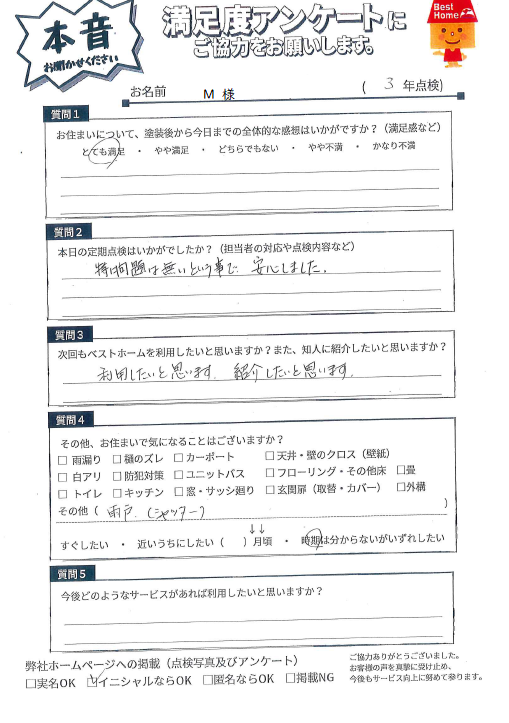 本音
お聞かせください
満足度アンケートに
ご協力をお願いします。
Best
Home
お名前 M 様 ( 3 年点検)
質問1
お住まいについて、塗装後から今日までの全体的な感想はいかがですか？（満足感など）
とても満足 ・ やや満足 ・ どちらでもない ・ やや不満 ・ かなり不満
質問2
本日の定期点検はいかがでしたか？（担当者の対応や点検内容など）
特に問題は無いという事で 安心しました。
質問3
次回もベストホームを利用したいと思いますか？また、知人に紹介したいと思いますか？
利用したいと思います。 紹介したいと思います。
質問4
その他、お住まいで気になることはございますか？
□ 雨漏り □ 樋のズレ □ カーポート □ 天井・壁のクロス（壁紙）
□ 白アリ □ 防犯対策 □ ユニットバス □ フローリング・その他床 □畳
□ トイレ □ キッチン □ 窓・サッシ廻り □ 玄関扉（取替・カバー） □外構
その他（ 雨戸.（シャッター） ）
↓↓
すぐしたい ・ 近いうちにしたい（ ）月頃 ・ 時期は分からないがいずれしたい
質問5
今後どのようなサービスがあれば利用したいと思いますか？
弊社ホームページへの掲載（点検写真及びアンケート）
□実名OK ☑イニシャルならOK □匿名ならOK □掲載NG
ご協力ありがとうございました。
お客様の声を真摯に受け止め、
今後もサービス向上に努めて参ります。